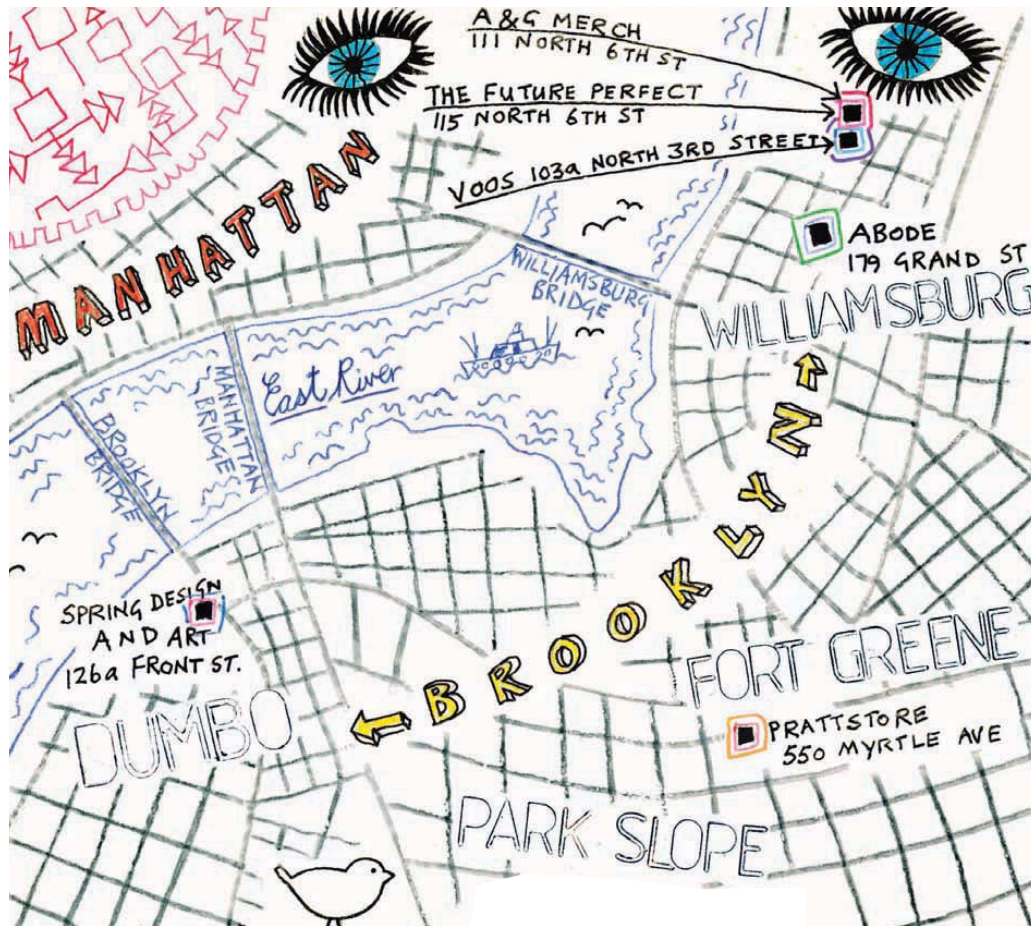 A & G MERCH
111 NORTH 6TH ST
THE FUTURE PERFECT
115 NORTH 6TH ST
VOOS 103a NORTH 3RD STREET
MANHATTAN
ABODE
179 GRAND ST
WILLIAMSBURG
BRIDGE
WILLIAMSBURG
East River
MANHATTAN
BRIDGE
BROOKLYN
BRIDGE
BROOKLYN
SPRING DESIGN
AND ART
126a FRONT ST.
FORT GREENE
DUMBO
PRATTSTORE
550 MYRTLE AVE
PARK SLOPE